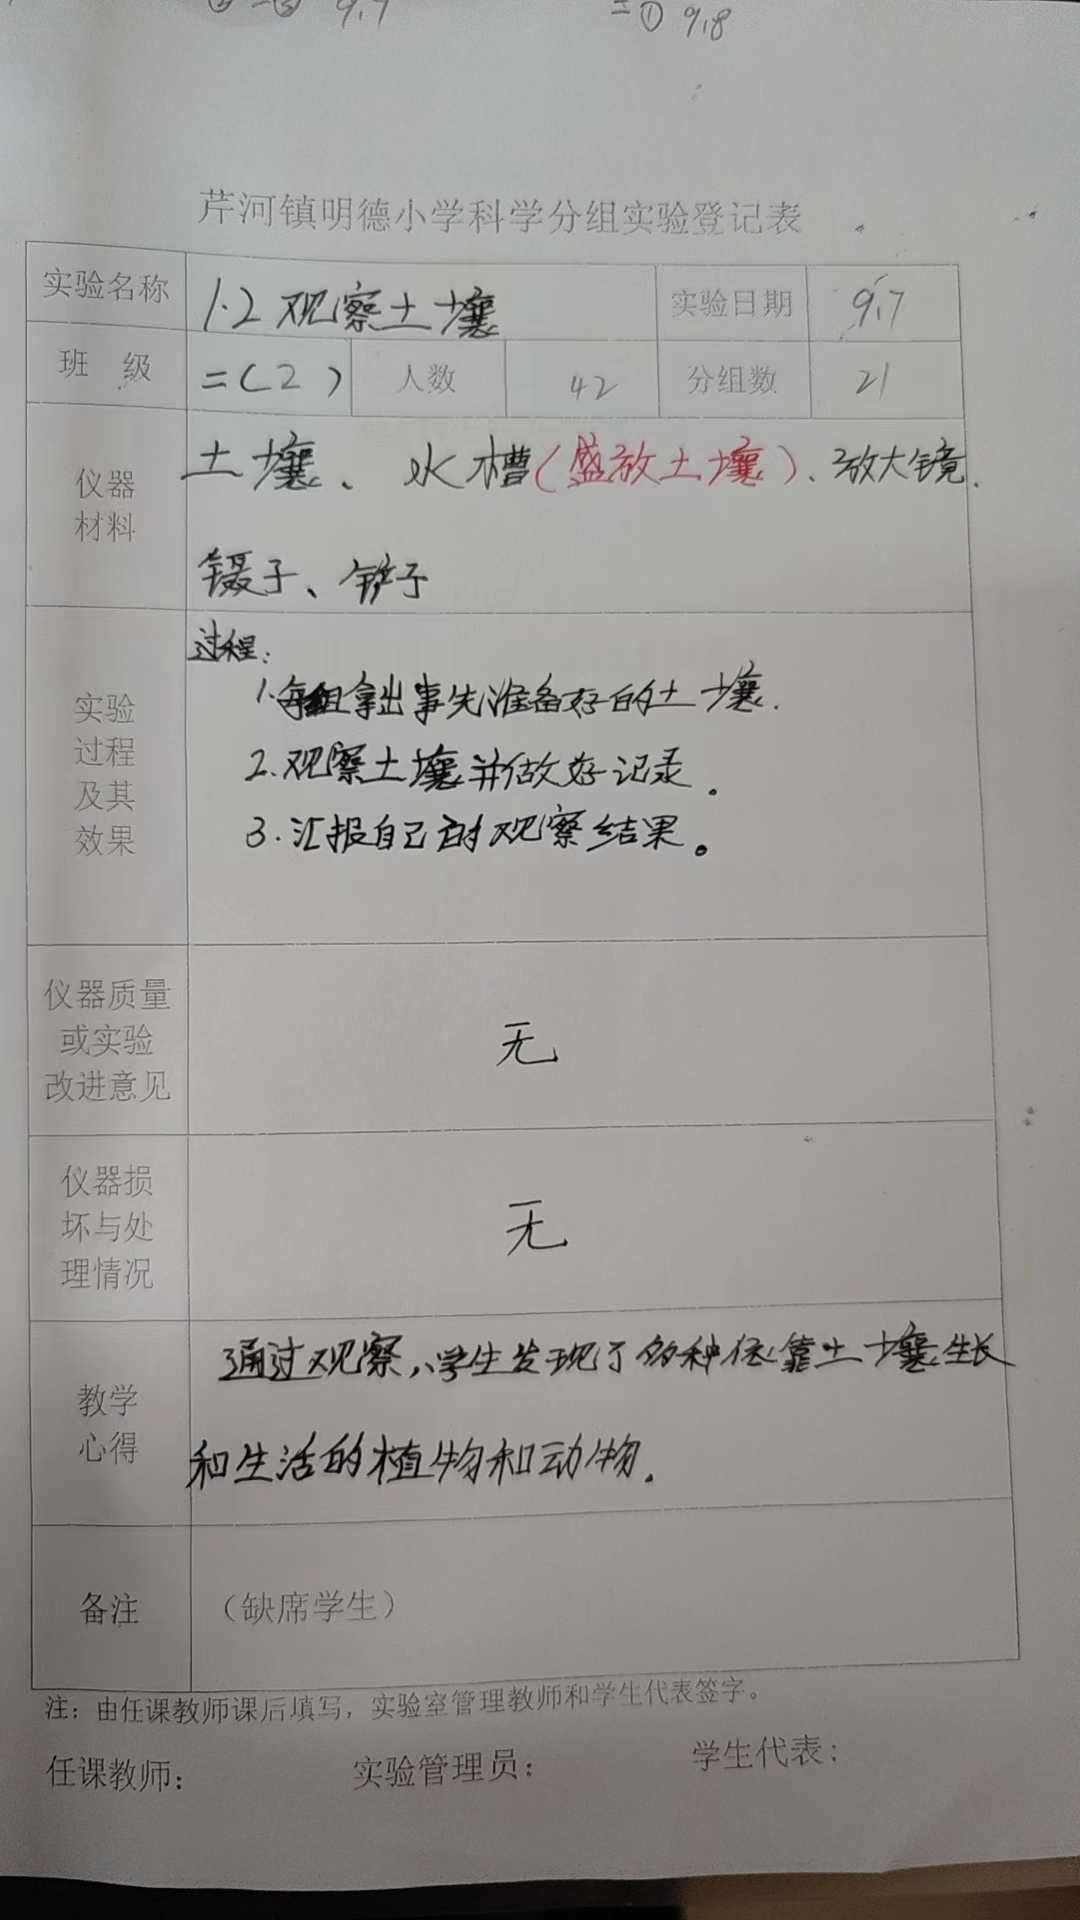 9.7 二① 9.8
芹河镇明德小学科学分组实验登记表
实验名称 1.2 观察土壤 实验日期 9.7
班 级 二(2) 人数 42 分组数 21
土壤、水槽(盛放土壤)、放大镜.
仪器
材料
镊子、铲子
过程:
1.每组拿出事先准备好的土壤.
实验
2.观察土壤并做好记录。
过程
及其
3.汇报自己的观察结果。
效果
仪器质量
或实验
改进意见
无
仪器损
坏与处
理情况
无
通过观察,学生发现了多种依靠土壤生长
教学
心得
和生活的植物和动物.
备注 (缺席学生)
注:由任课教师课后填写,实验室管理教师和学生代表签字。
任课教师: 实验管理员: 学生代表: